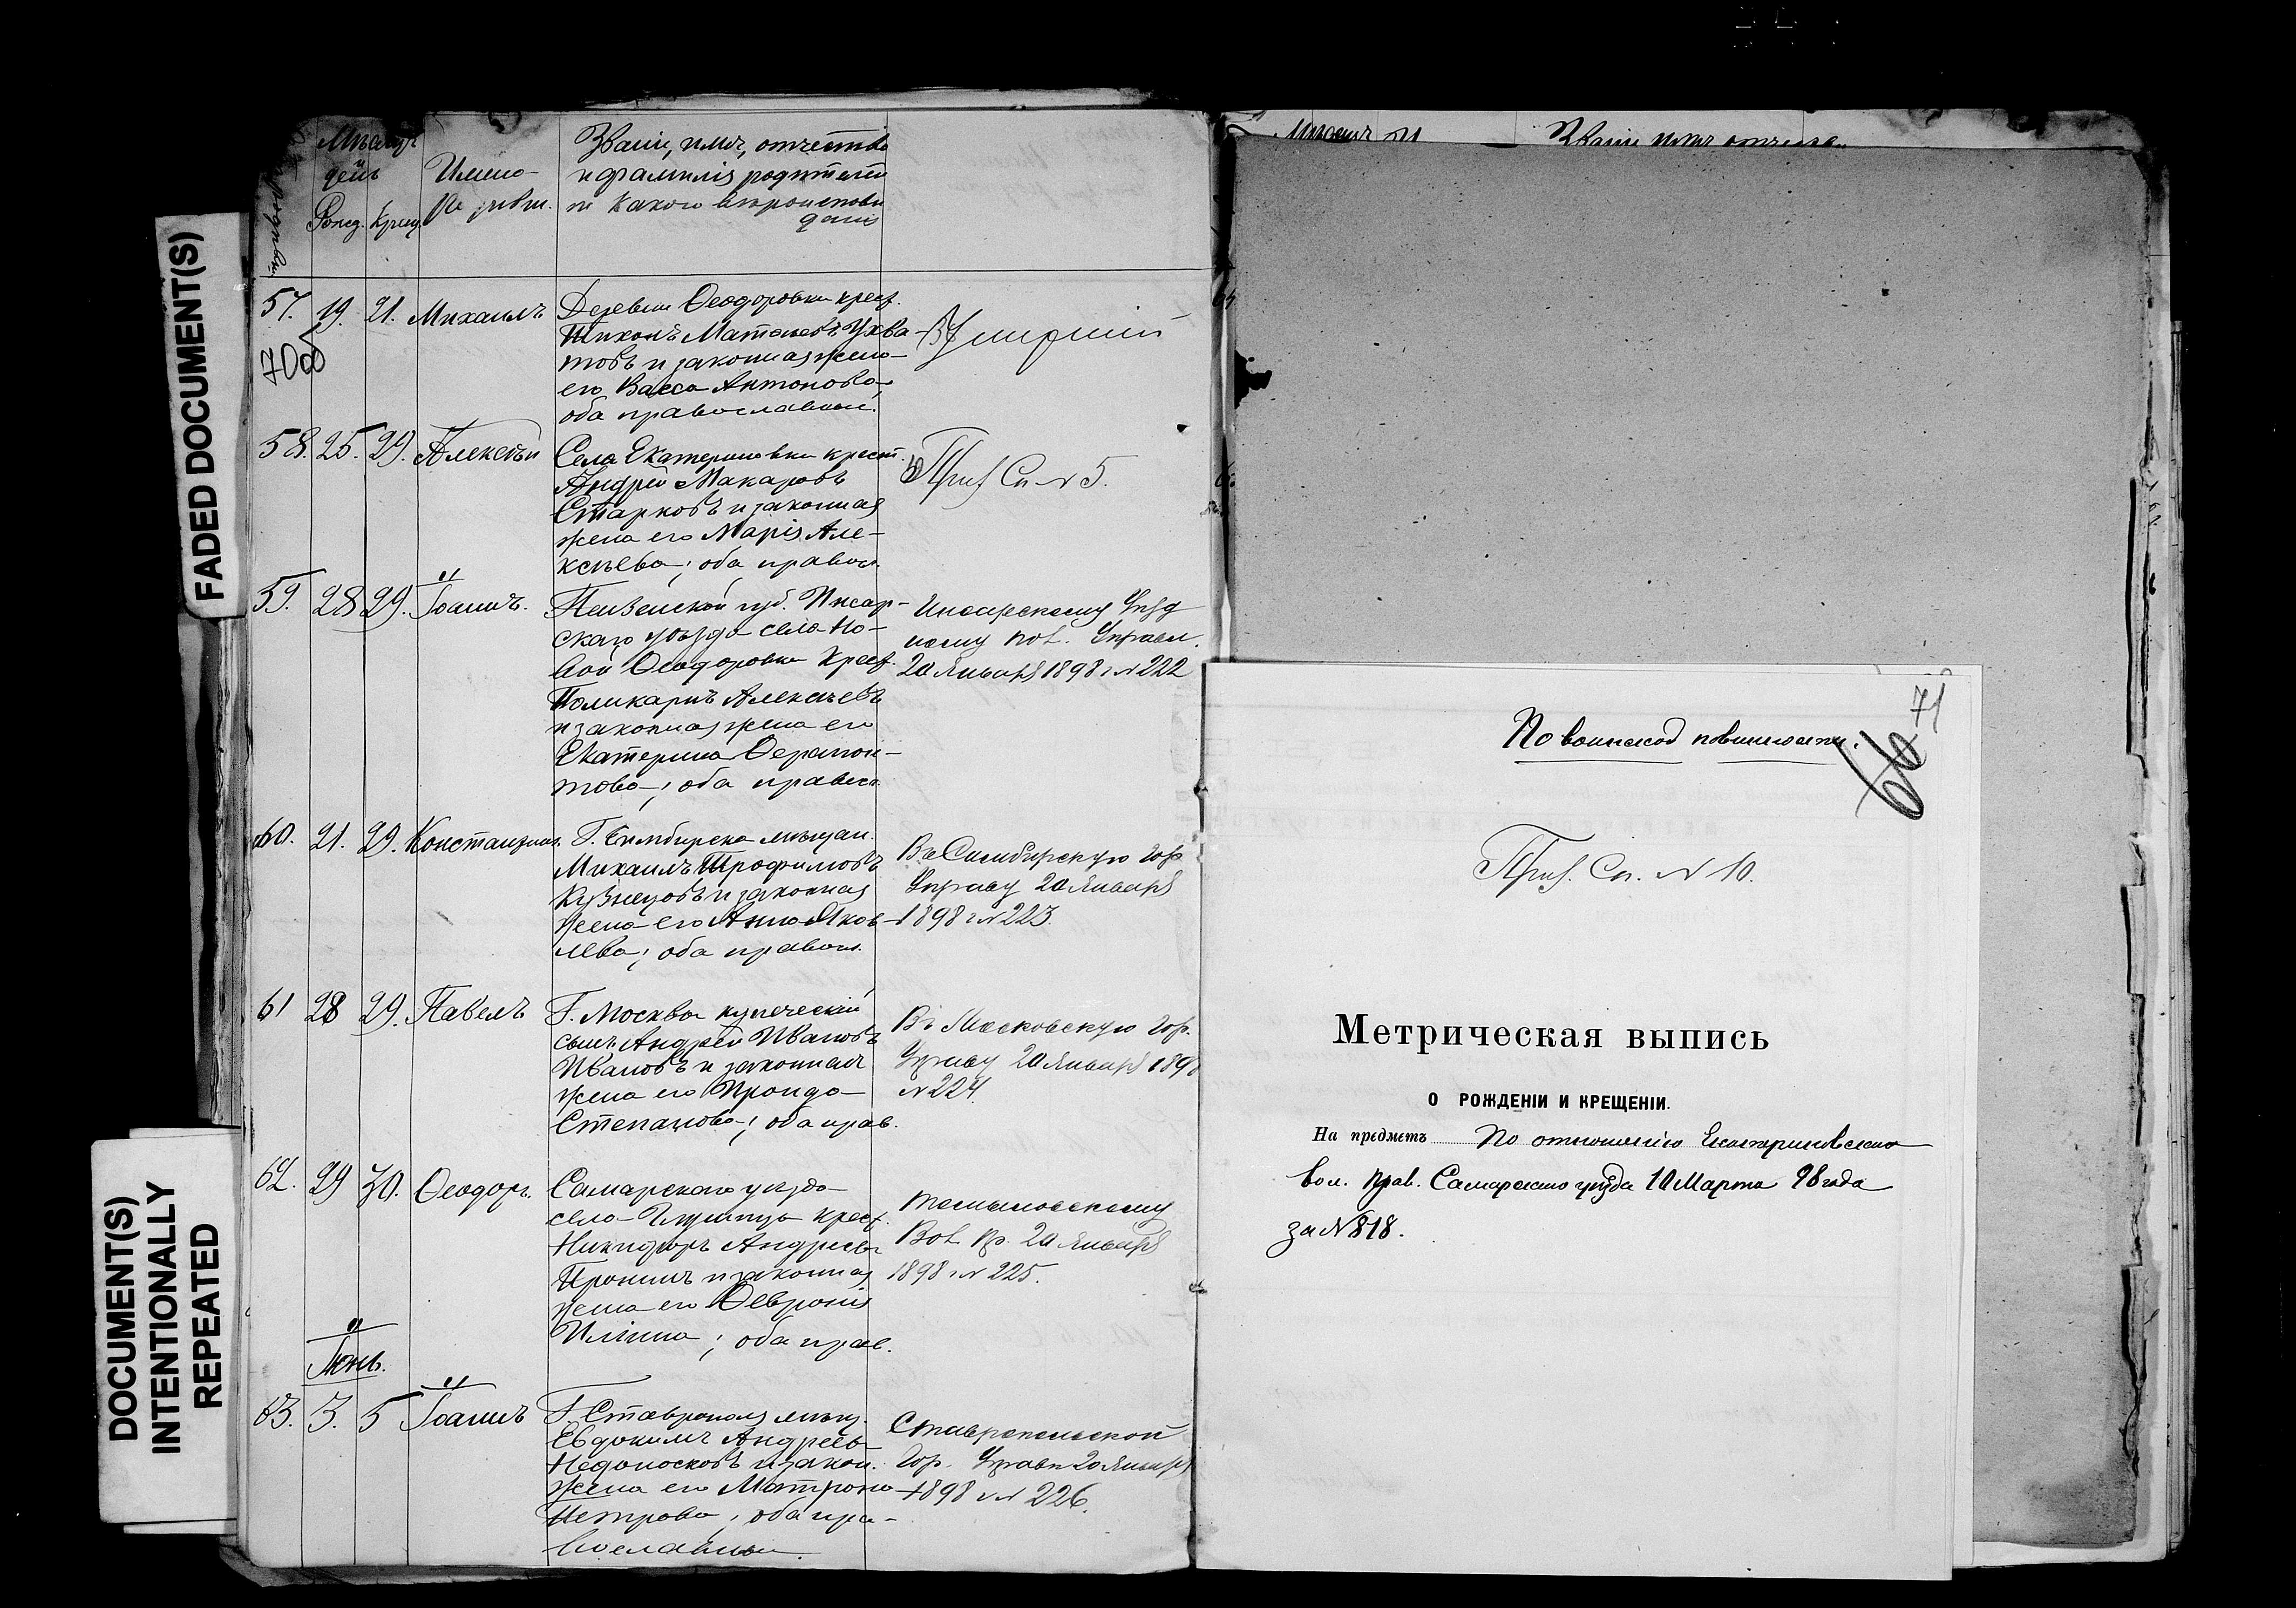 FADED DOCUMENT(S)
DOCUMENT(S)
INTENTIONALLY
REPEATED
Мѣсяцъ
день
Рожд. Крещ.
Имена
Званіе, имя, отчество
и фамилія родителей
и какого вѣроисповѣ
данія
57. 19. 21. Михаилъ
70об
Деревни Ѳеодоровки крест.
Тихонъ Матвѣевъ Ухва
товъ и законная жена
его Васса Антонова
оба православные.
Умершій
58. 25. 29. Алексѣй
Села Екатериновки крест.
Андрей Макаровъ
Старковъ и законная
жена его Марія Але-
ксѣева; оба правосл.
Приз Сп. N 5.
59. 28 29. Іоаннъ.
Пензенской губ. Инсар-
скаго уѣзда села Но-
вой Ѳеодоровки крест.
Поликарпъ Алексѣевъ
и законная жена его
Екатерина Ѳерапон-
това; оба правосл.
Инсарскому Уѣзд
ному пол. Управл.
20 Января 1898 г N 222
60. 21. 29. Константинъ
Г. Симбирска мѣщан.
Михаилъ Трофимовъ
Кузнецовъ и законная
жена его Анна Яков-
лева; оба правосл.
Въ Симбирскую Гор.
Управу 20 Января
1898 г N 223.
61 28 29. Павелъ
Г. Москвы купеческій
сынъ Андрей Ивановъ
Ивановъ и законная
жена его Ироида
Степанова; оба прав.
Въ Московскую Гор.
Управу 20 Января 189
N 224.
62. 29 30. Ѳеодоръ.
Самарскаго уѣзда
села крест.
Никифоръ Андреевъ
Пронинъ и законная
жена его Ѳевронія
Ильина; оба прав.
Вол. Пр. 20 Января
1898 г N 225.
Іюнь.
63. 3. 5 Іоаннъ
Г. Ставрополя мѣщ.
Евдокимъ Андреевъ
Недоносковъ и закон.
жена его Матрона
Петрова; оба пра-
вославные
Ставропольской
Гор. Управѣ 20 Января
1898 г N 226.
Званіе имя отчество
71
66
По воинской повинности.
Приз. Сп. N 10.
Метрическая выпись
О РОЖДЕНІИ И КРЕЩЕНІИ.
На предметъ По отношенію Екатериновскаго
вол. прав. Самарскаго уѣзда 10 Марта 98 года
за N 818.